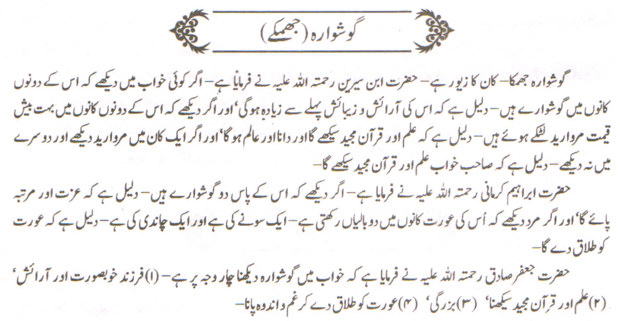 گوشوارہ (جھمکے)
گوشوارہ جھمکا- کان کا زیور ہے- حضرت ابن سیرین رحمتہ اللہ علیہ نے فرمایا ہے- اگر کوئی خواب میں دیکھے کہ اس کے دونوں
کانوں میں گوشوارے ہیں- دلیل ہے کہ اس کی آرائش و زیبائش پہلے سے زیادہ ہوگی' اور اگر دیکھے کہ اس کے دونوں کانوں میں بہت بیش
قیمت مروارید لٹکے ہوئے ہیں- دلیل ہے کہ علم اور قرآن مجید سیکھے گا اور دانا اور عالم ہو گا' اور اگر ایک کان میں مروارید دیکھے اور دوسرے
میں نہ دیکھے- دلیل ہے کہ صاحب خواب علم اور قرآن مجید سیکھے گا-
حضرت ابراہیم کرمانی رحمتہ اللہ علیہ نے فرمایا ہے- اگر دیکھے کہ اس کے پاس دو گوشوارے ہیں- دلیل ہے کہ عزت اور مرتبہ
پائے گا' اور اگر مرد دیکھے کہ اُس کی عورت کانوں میں دو بالیاں رکھتی ہے- ایک سونے کی ہے اور ایک چاندی کی ہے- دلیل ہے کہ عورت
کو طلاق دے گا-
حضرت جعفر صادق رحمتہ اللہ علیہ نے فرمایا ہے کہ خواب میں گوشوارہ دیکھنا چار وجہ پر ہے- (۱) فرزند خوبصورت اور آرائش'
(۲) علم اور قرآن مجید سیکھنا' (۳) بزرگی' (۴) عورت کو طلاق دے کر غم و اندوہ پانا-